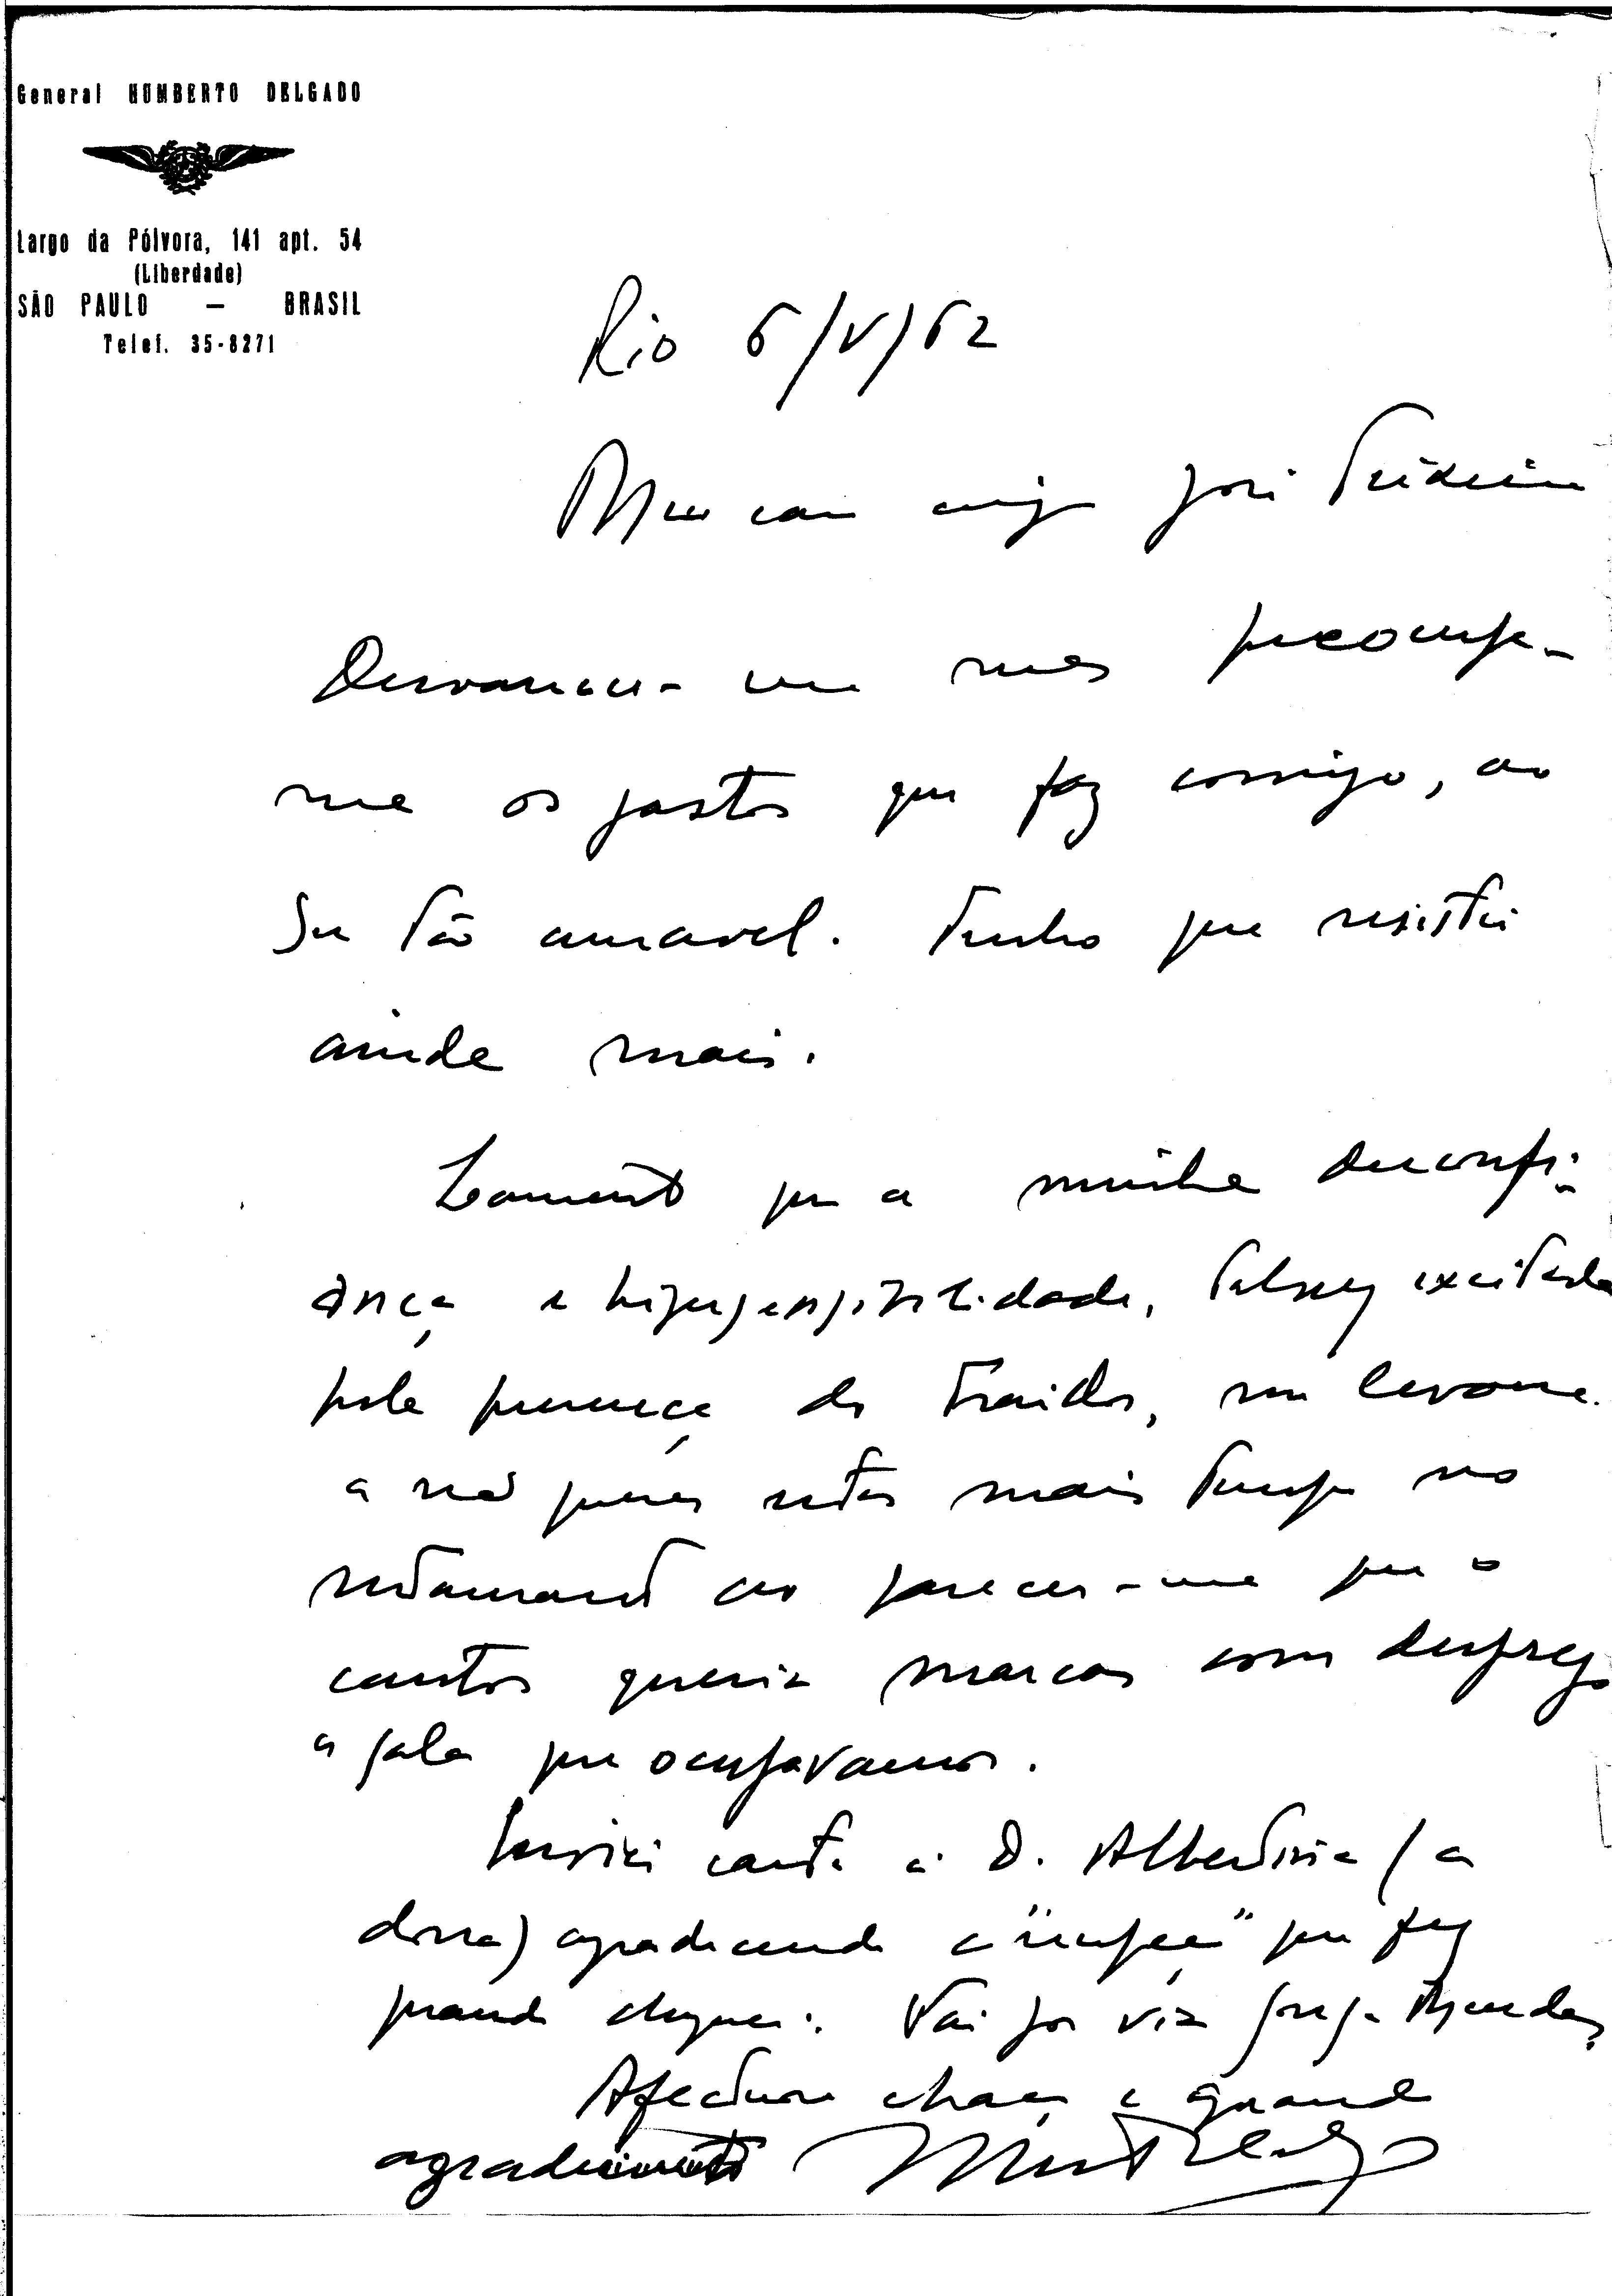 General HUMBERTO DELGADO
Largo da Pólvora, 141 apt. 54
(Liberdade)
SÃO PAULO — BRASIL
Telef. 35-8271
Rio 6/V/62
Meu caro amigo José
Desvanece-me mas preocupa-
me os gastos que faz comigo, ao
ser tão amavel. Tenho que resistir
ainda mais.
Lamento que a minha desconfi-
ança e hipersensibilidade, talvez excitada
pela presença do traidor, me levou
a não querer estar mais tempo no
restaurante ao parecer-me que o
cantor queria marcar com desprezo
a sala que ocupavamos.
Escrevi carta à D. Albertina (a
dona) agradecendo a que fez
quando cheguei. Vai por via Mendes
Afectuoso abraço e grande
agradecimento